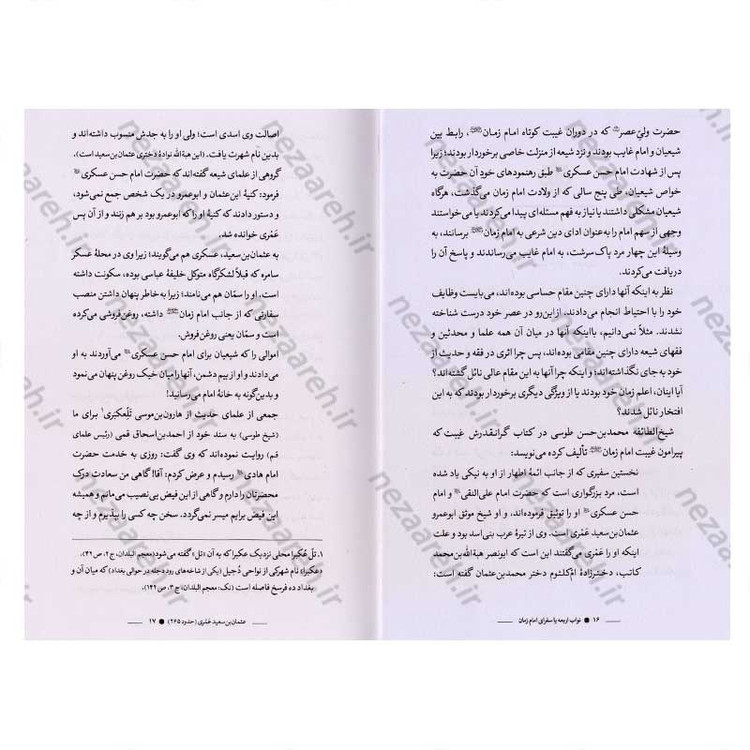 حضرت ولیّ عصر که در دوران غیبت کوتاه امام زمان، رابط بین
شیعیان و امام غایب بودند و نزد شیعه از منزلت خاصی برخوردار بودند؛ زیرا
پس از شهادت امام حسن عسکری طبق رهنمودهای خود آن حضرت به
خواص شیعیان، طی پنج سالی که از ولادت امام زمان می‌گذشت، هرگاه
شیعیان مشکلی داشتند یا نیاز به فهم مسئله‌ای پیدا می‌کردند یا می‌خواستند
وجهی از سهم امام را به‌عنوان ادای دین شرعی به امام زمان برسانند، به
وسیلهٔ این چهار مرد پاک سرشت، به امام غایب می‌رساندند و پاسخ آن را
دریافت می‌کردند.
نظر به اینکه آنها دارای چنین مقام حساسی بوده‌اند، می‌بایست وظایف
خود را با احتیاط انجام می‌دادند، از این‌رو در عصر خود درست شناخته
نشدند. مثلاً نمی‌دانیم، با اینکه آنها در میان آن همه علما و محدثین و
فقهای شیعه دارای چنین مقامی بوده‌اند، پس چرا اثری در فقه و حدیث از
خود به جای نگذاشته‌اند؛ و اینکه چرا آنها به این مقام عالی نائل گشته‌اند؟
آیا اینان، اعلم زمان خود بودند یا از ویژگی دیگری برخوردار بودند که به این
افتخار نائل شدند؟
شیخ‌الطائفه محمد بن حسن طوسی در کتاب گرانقدرش غیبت که
پیرامون غیبت امام زمان تألیف کرده می‌نویسد:
نخستین سفیری که از جانب ائمهٔ اطهار از او به نیکی یاد شده
است، مرد بزرگواری است که حضرت امام علی‌النقی و امام
حسن عسکری او را توثیق فرموده‌اند، و او شیخ موثق ابوعمرو
عثمان بن سعید عَمْری است. وی از تیرهٔ عرب بنی اسد بود و علت
اینکه او را عَمْری می‌گفتند این است که ابونصر هبةالله بن محمد
کاتب، دخترزادهٔ امّ‌کلثوم دختر محمد بن عثمان گفته است:
۱۶ ● نواب اربعه یا سفرای امام زمان
اصالت وی اسدی است؛ ولی او را به جدش منسوب داشته‌اند و
بدین نام شهرت یافت. (این هبةالله نوادهٔ دختری عثمان بن سعید است).
گروهی از علمای شیعه گفته‌اند که حضرت امام حسن عسکری
فرمود: کنیهٔ ابن‌عثمان و ابوعمرو در یک شخص جمع نمی‌شود،
و دستور دادند که کنیهٔ او را که ابوعمرو بود بر هم زنند و از آن پس
عَمْری خوانده شد.
به عثمان بن سعید، عسکری هم می‌گویند؛ زیرا وی در محلهٔ عسکر
سامره که قبلاً لشکرگاه متوکل خلیفهٔ عباسی بوده، سکونت داشته
است. او را سمّان هم می‌نامند؛ زیرا به خاطر پنهان داشتن منصب
سفارتی که از جانب امام زمان داشته، روغن‌فروشی می‌کرده
است و سمّان یعنی روغن‌فروش.
اموالی را که شیعیان برای امام حسن عسکری می‌آوردند به او
می‌دادند و او از بیم دشمن، آنها را میان خیک روغن پنهان می‌نمود
و بدین‌گونه به خانهٔ امام می‌رسانید!
جمعی از علمای حدیث از هارون بن موسی تَلَّعُکبَری۱ برای ما
(شیخ طوسی) به سند خود از احمد بن اسحاق قمی (رئیس علمای
قم) روایت نموده‌اند که وی گفت: روزی به خدمت حضرت
امام هادی رسیدم و عرض کردم: آقا! گاهی من سعادت درک
محضرتان را دارم و گاهی از این فیض بی‌نصیب می‌مانم و همیشه
این فیض برایم میسر نمی‌گردد. سخن چه کسی را بپذیرم و از چه
۱. تلّ عُکبرا محلی نزدیک عکبرا که به آن «تل» گفته می‌شود (معجم البلدان، ج ۲، ص ۴۲).
«عکبرا» نام شهرکی از نواحی دُجیل (یکی از شاخه‌های رود دجله در حوالی بغداد) که میان آن و
بغداد ده فرسخ فاصله است (نک: معجم البلدان، ج ۳، ص ۱۴۲).
عثمان بن سعید عَمْری (حدود ۲۶۵) ● ۱۷
nezaareh.ir